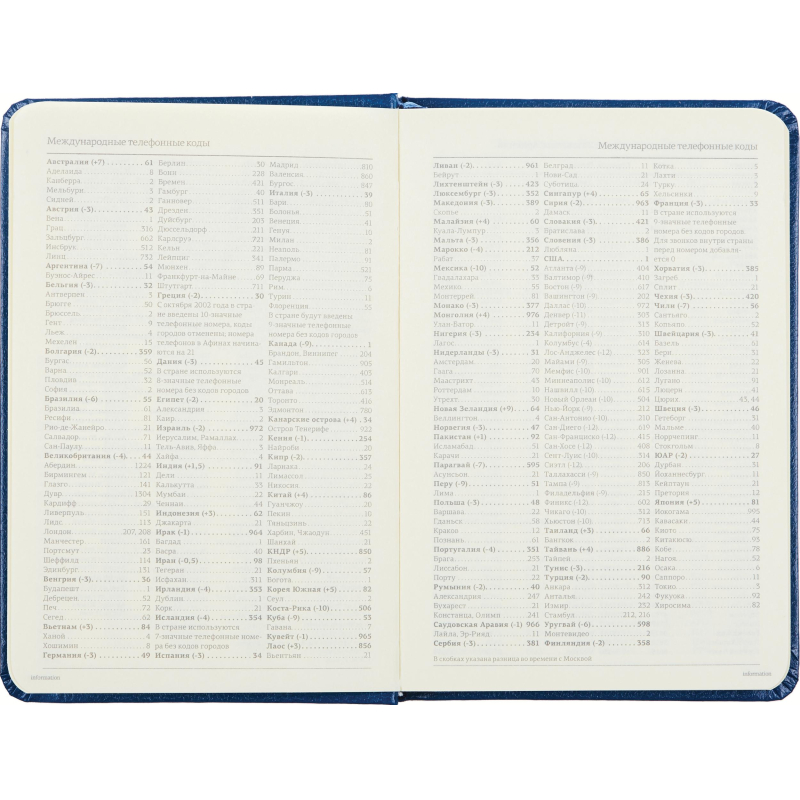 Международные телефонные коды
Австралия (+7) 61
Аделаида 8
Канберра 2
Мельбурн 3
Сидней 2
Австрия (-3) 43
Вена 1
Грац 316
Зальцбург 662
Инсбрук 512
Линц 732
Аргентина (-7) 54
Буэнос-Айрес 11
Бельгия (-3) 32
Антверпен 3
Брюгге 50
Брюссель 2
Гент 9
Льеж 4
Мехелен 15
Болгария (-2) 359
Бургас 56
Варна 52
Пловдив 32
София 2
Бразилия (-6) 55
Бразилиа 61
Ресифи 81
Рио-де-Жанейро 21
Салвадор 71
Сан-Паулу 11
Великобритания (-4) 44
Абердин 1224
Бирмингем 121
Глазго 141
Дувр 1304
Кардифф 29
Ливерпуль 151
Лидс 113
Лондон 207, 208
Манчестер 161
Портсмут 23
Шеффилд 114
Эдинбург 131
Венгрия (-3) 36
Будапешт 1
Дебрецен 52
Печ 72
Сегед 62
Вьетнам (+3) 84
Ханой 4
Хошимин 8
Германия (-3) 49
Берлин 30
Бонн 228
Бремен 421
Гамбург 40
Ганновер 511
Дрезден 351
Дуйсбург 203
Дюссельдорф 211
Карлсруэ 721
Кельн 221
Лейпциг 341
Мюнхен 89
Франкфурт-на-Майне 69
Штутгарт 711
Греция (-2) 30
С октября 2002 года в стра
не введены 10-значные
телефонные номера, коды
городов отменены, номера
телефонов в Афинах начина-
ются на 21
Дания (-3) 45
В стране используются
8-значные телефонные
номера без кодов городов
Египет (-2) 20
Александрия 3
Каир 2
Израиль (-2) 972
Иерусалим, Рамаллах 2
Тель-Авив, Яффо 3
Хайфа 4
Индия (+1,5) 91
Дели 11
Калькутта 33
Мумбаи 22
Ченнаи 44
Индонезия (+3) 62
Джакарта 21
Ирак (-1) 964
Багдад 1
Басра 40
Иран (-0,5) 98
Тегеран 21
Исфахан 311
Ирландия (-4) 353
Дублин 1
Корк 21
Исландия (-4) 354
В стране используются
7-значные телефонные номе-
ра без кодов городов
Испания (-3) 34
Мадрид 810
Валенсия 860
Бургос 847
Италия (-3) 39
Бари 80
Болонья 51
Венеция 41
Генуя 10
Милан 2
Неаполь 81
Палермо 91
Парма 521
Перуджа 75
Рим 6
Турин 11
Флоренция 55
В стране будут введены
9-значные телефонные
номера без кодов городов
Канада (-9) 1
Брандон, Виннипег 204
Гамильтон 905
Калгари 403
Монреаль 514
Оттава 613
Торонто 416
Эдмонтон 780
Канарские острова (-4) 34
Остров Тенерифе 922
Кения (-1) 254
Найроби 20
Кипр (-2) 357
Ларнака 24
Лимассол 25
Никосия 22
Китай (+4) 86
Гуанчжоу 20
Пекин 10
Тяньцзинь 22
Харбин, Чжаодун 451
Шанхай 21
КНДР (+5) 850
Пхеньян 2
Колумбия (-9) 57
Богота 1
Корея Южная (+5) 82
Сеул 2
Коста-Рика (-10) 506
Куба (-9) 53
Гавана 7
Кувейт (-1) 965
Лаос (+3) 856
Вьентьян 21
information
Международные телефонные коды
Ливан (-2) 961
Бейрут 1
Лихтенштейн (-3) 423
Люксембург (-3) 352
Македония (-3) 389
Скопье 2
Малайзия (+4) 60
Куала-Лумпур 3
Мальта (-3) 356
Марокко (-4) 212
Рабат 37
Мексика (-10) 52
Гвадалахара 33
Мехико 55
Монтеррей 81
Монако (-3) 377
Монголия (+4) 976
Улан-Батор 11
Нигерия (-3) 234
Лагос 1
Нидерланды (-3) 31
Амстердам 20
Гаага 70
Маастрихт 43
Роттердам 10
Утрехт 30
Новая Зеландия (+9) 64
Веллингтон 4
Норвегия (-3) 47
Пакистан (+1) 92
Исламабад 51
Карачи 21
Парагвай (-7) 595
Асунсьон 21
Перу (-9) 51
Лима 1
Польша (-3) 48
Варшава 22
Гданьск 58
Краков 12
Познань 61
Португалия (-4) 351
Брага 253
Лиссабон 21
Порту 22
Румыния (-2) 40
Александрия 247
Бухарест 21
Констанца, Олимп 241
Саудовская Аравия (-1) 966
Лайла, Эр-Рияд 11
Сербия (-3) 381
Белград 11
Нови-Сад 21
Суботица 24
Сингапур (+4) 65
Сирия (-2) 963
Дамаск 11
Словакия (-3) 421
Братислава 2
Словения (-3) 386
Любляна 1
США 1
Атланта (-9) 404
Балтимор (-9) 410
Бостон (-9) 617
Вашингтон (-9) 202
Даллас (-10) 972
Денвер (-11) 303
Детройт (-9) 313
Калифорния (-9) 310
Колумбус (-9) 614
Лос-Анджелес (-12) 323
Майами (-9) 305
Мемфис (-10) 901
Миннеаполис (-10) 612
Нашвилл (-10) 615
Новый Орлеан (-10) 504
Нью-Йорк (-9) 212
Сан-Антонио (-10) 210
Сан-Диего (-12) 619
Сан-Франциско (-12) 415
Сан-Хосе (-12) 408
Сент-Луис (-10) 314
Сиэтл (-12) 206
Таллахасси (-9) 850
Тампа (-9) 813
Филадельфия (-9) 215
Финикс (-12) 602
Чикаго (-10) 312
Хьюстон (-10) 713
Таиланд (+3) 66
Бангкок 2
Тайвань (+4) 886
Тайпей 2
Тунис (-3) 216
Турция (-2) 90
Анкара 312
Анталья 242
Измир 232
Стамбул 212, 216
Уругвай (-6) 598
Монтевидео 2
Финляндия (-2) 358
Котка 5
Лахти 3
Турку 2
Хельсинки 9
Франция (-3) 33
В стране используются
9-значные телефонные
номера без кодов городов.
Для звонков внутри страны
перед номером добавля-
ется 0
Хорватия (-3) 385
Загреб 1
Сплит 21
Чехия (-3) 420
Чили (-7) 56
Сантьяго 2
Копьяпо 52
Швейцария (-3) 41
Базель 61
Берн 31
Женева 22
Лозанна 21
Лугано 91
Люцерн 41
Цюрих 43, 44
Швеция (-3) 46
Гетеборг 31
Мальме 40
Норрчепинг 11
Стокгольм 8
ЮАР (-2) 27
Дурбан 31
Йоханнесбург 11
Кейптаун 21
Претория 12
Япония (+5) 81
Йокогама 995
Кавасаки 44
Киото 75
Китакюсю 93
Кобе 78
Нагоя 52
Осака 6
Саппоро 11
Токио 3
Фукуока 92
Хиросима 82
В скобках указана разница во времени с Москвой
information